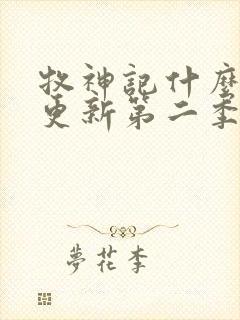 牧神記什麼
更新第二季
夢花李